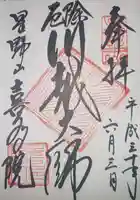 奉拝
平成三十年
六月三日
厄除
川越大師
星野山
喜多院